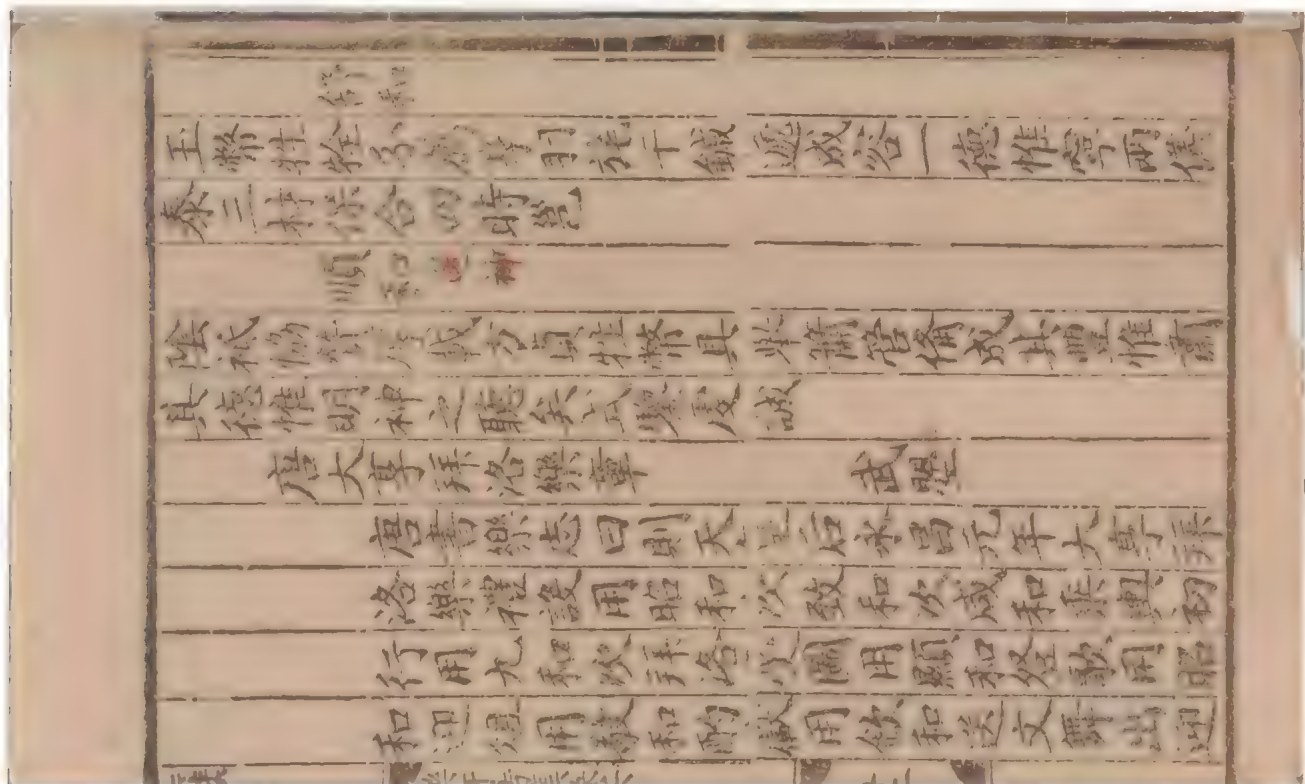 舒和
玉幣牲牷分薦享羽旄干鏚遞成容一德惟寧兩儀
泰三材保合四時邕
順和 迎神
陰祇協贊厚載方貞牲幣具舉簫管備成其豐惟肅
其德惟明神之聽矣式鑒虔誠
唐大享拜洛樂章 武曌
唐書樂志曰則天皇后永昌元年大享拜
洛樂禮設用昭和次致和次咸和乘輿初
行用九和次拜洛受圖用顯和登歌用昭
和迎俎用敬和酌獻用欽和送文舞出迎